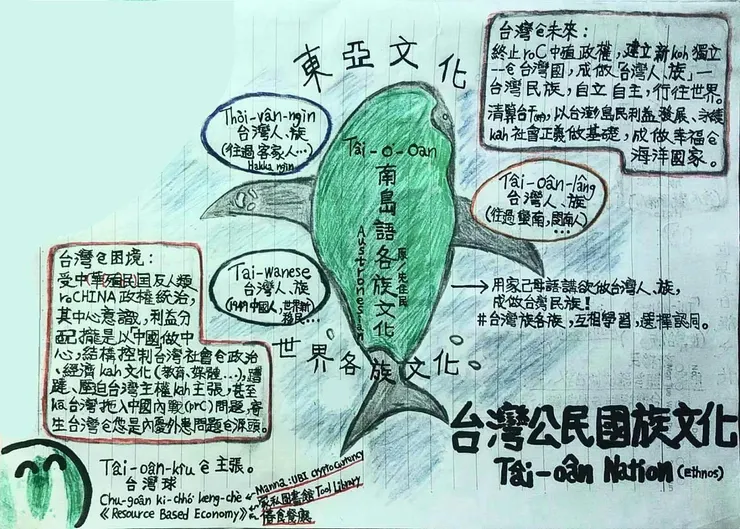 東亞文化
Thòi-vân-ngìn
台灣人、族
(往過客家人...)
Hakka ngin
Tâi-o-oan
南島語各族文化
Austronesian
原、先住民
台灣ê未來:
終止roC中殖政權,建立新kah獨立
ê台灣國,成做「台灣人、族」—
台灣民族,自立自主,行往世界。
以台灣島民利益、發展、永續
kah社會正義做基礎,成做幸福ê
海洋國家。
Tâi-oân-lâng
台灣人、族
(往過閩南人...)
台灣ê困境:
受中華殖民國反人類
roCHINA政權統治,
其中心意識,利益分
配攏是以「中國做中
心」,結構控制台灣社會ê政治
、經濟kah文化(教育、媒體...),蹧
躂、壓迫台灣主權kah主張,甚至
kā台灣拖入中國內戰(prc)問題,寄
生台灣ê
內憂外患問題ê源頭。
Tai-wanese
台灣人、族
(1949中國人,世界新
移民...
用家己母語講欲做台灣人、族,
成做台灣民族!
#台灣族各族,互相學習,選擇認同。
世界各族文化
台灣公民國族文化
Tâi-oân Nation (Ethnos)
Tâi-oân-kiu ê主張。
台灣球
Chu-goân ki-chhó keng-chè
《Resource Based Economy》
Manna:UBI cryptocurrency
家私圖書館Tool Library
惜食餐廳